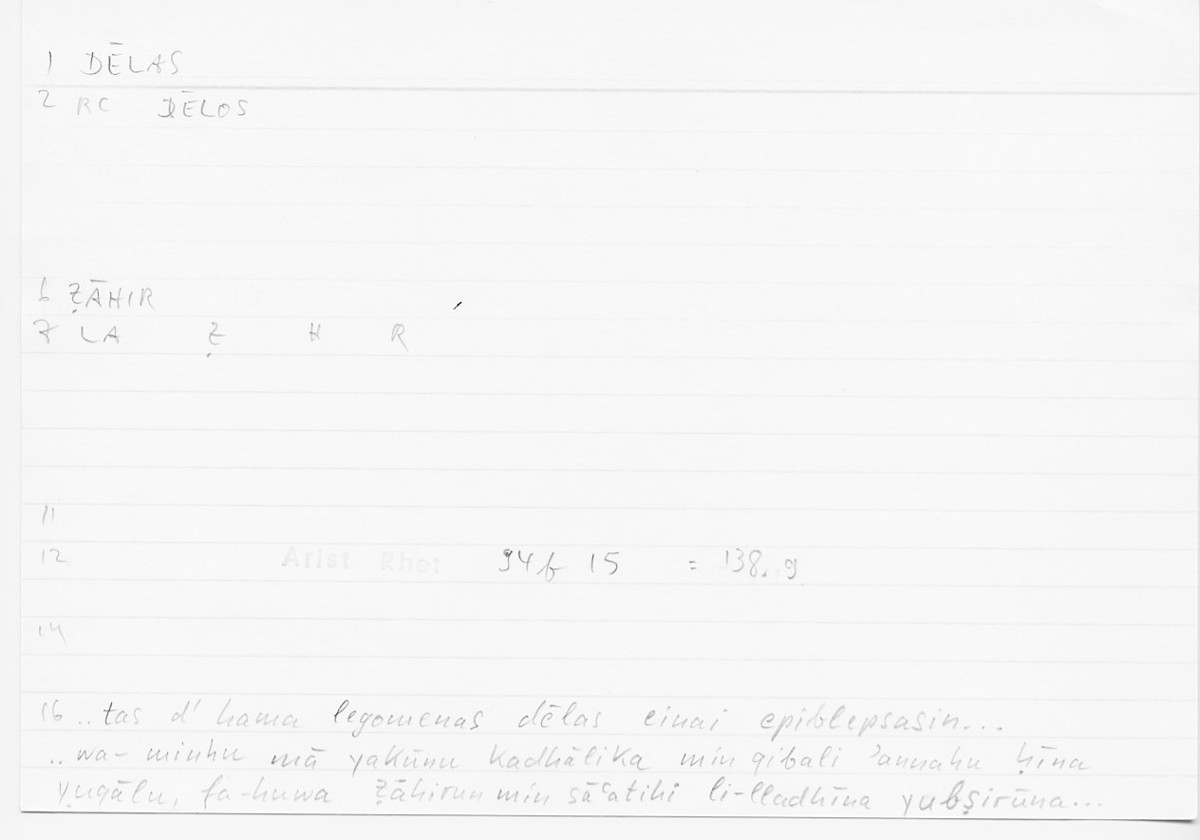 1 DĒLAS
2 RC DĒLOS
6 ẒĀHIR
7 LA Ẓ H R
11
12 Arist Rhet 94b 15 = 138, 9
14
16 ..tas d' hama legomenas dēlas einai epiblepsasin...
..wa-minhu mā yakūnu kadhālika min qibali ʾannahu ḥīna
yuqālu, fa-huwa ẓāhirun min sāʿatihi li-lladhīna yubṣirūna...